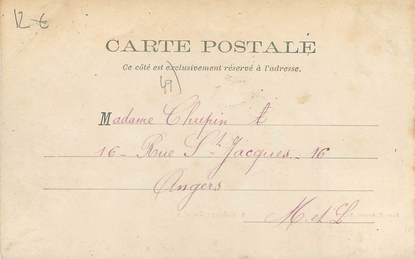 12 €
CARTE POSTALE
Ce côté est exclusivement réservé à l'adresse.
49)
Madame Chupin t
16 - Rue St. Jacques - 16
Angers
M. et L.